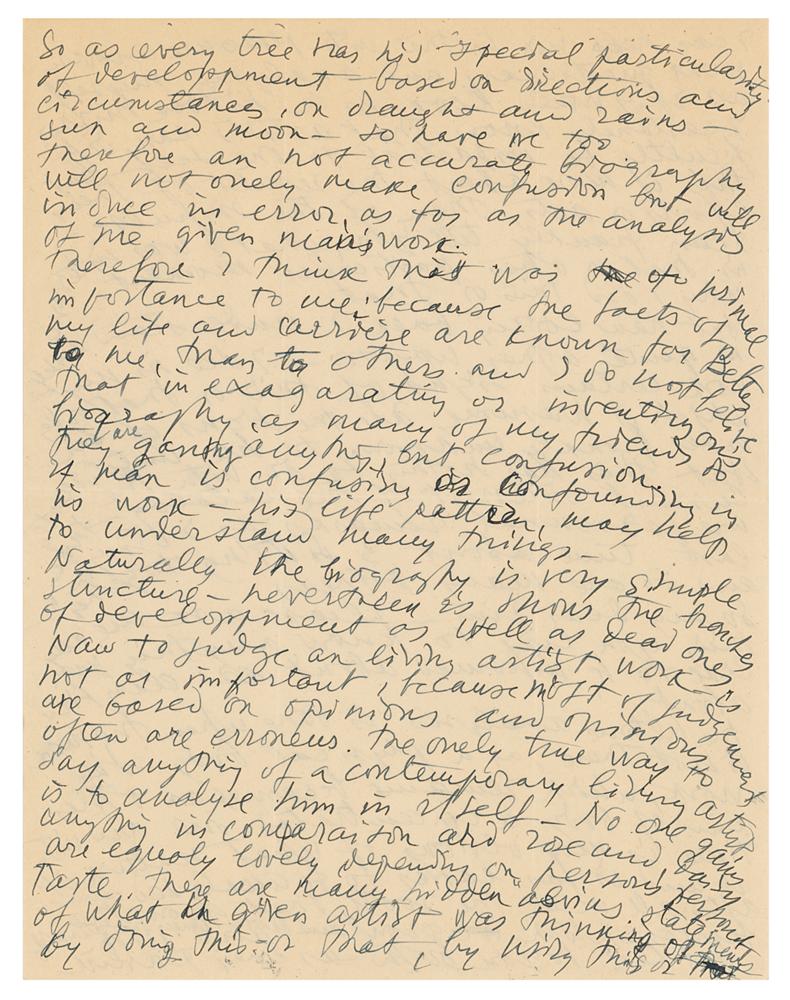 So as every tree has his special particularity
of developpment – based on directions and
circumstances, on draught and rains –
sun and moon – so have we too
therefore an not accurate biography
will not onely make confusion but will
induce in error, as far as the analysis
of the given man's work.
Therefore I think that was of primal
importance to me; because the facts of
my life and carrière are known far better
to me, than to others and I do not belive
that in exagarating or inventing ones
biography as many of my friends do
they are ganing anything, but confusion.
If man is confusing or confounding in
his work – his life pattern, may help
to understand many things –
Naturally the biography is very simple
structure – neverthless is shows the branches
of developpment as well as dead ones
Now to judge an living artist work – is
not as important, because most of judgement
are based on opinions and opinions
often are erroneus. The onely true way to
say anything of a contemporary living artist
is to analyse him in itself – No one gains
anything in comparaison and rose and daisy
are equaly lovely depending on persons personal
taste. There are many hidden statements
of what given artist was thinking of
by doing this or that, by using this or that